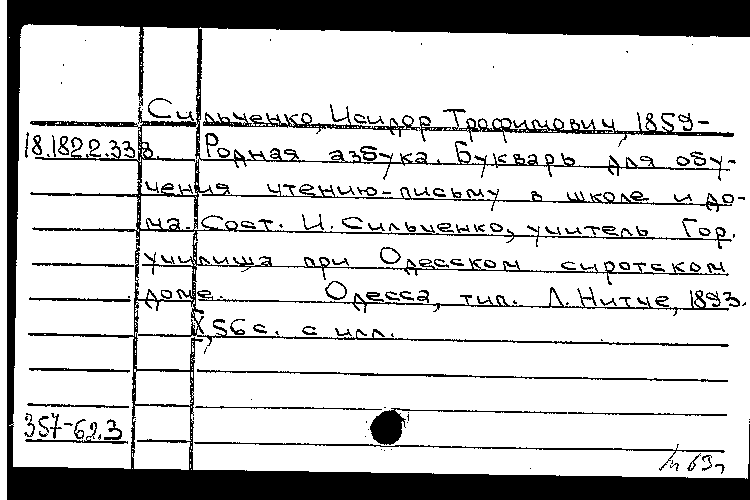 Сильченко, Исидор Трофимович, 1859-
18.182.2.338. Родная азбука. Букварь для обу-
чения чтению-письму в школе и до-
ма. Сост. И. Сильченко, учитель Гор.
училища при Одесском сиротском
доме. Одесса, тип. Л. Нитче, 1893.
X, 56 с. с илл.
357-62.3